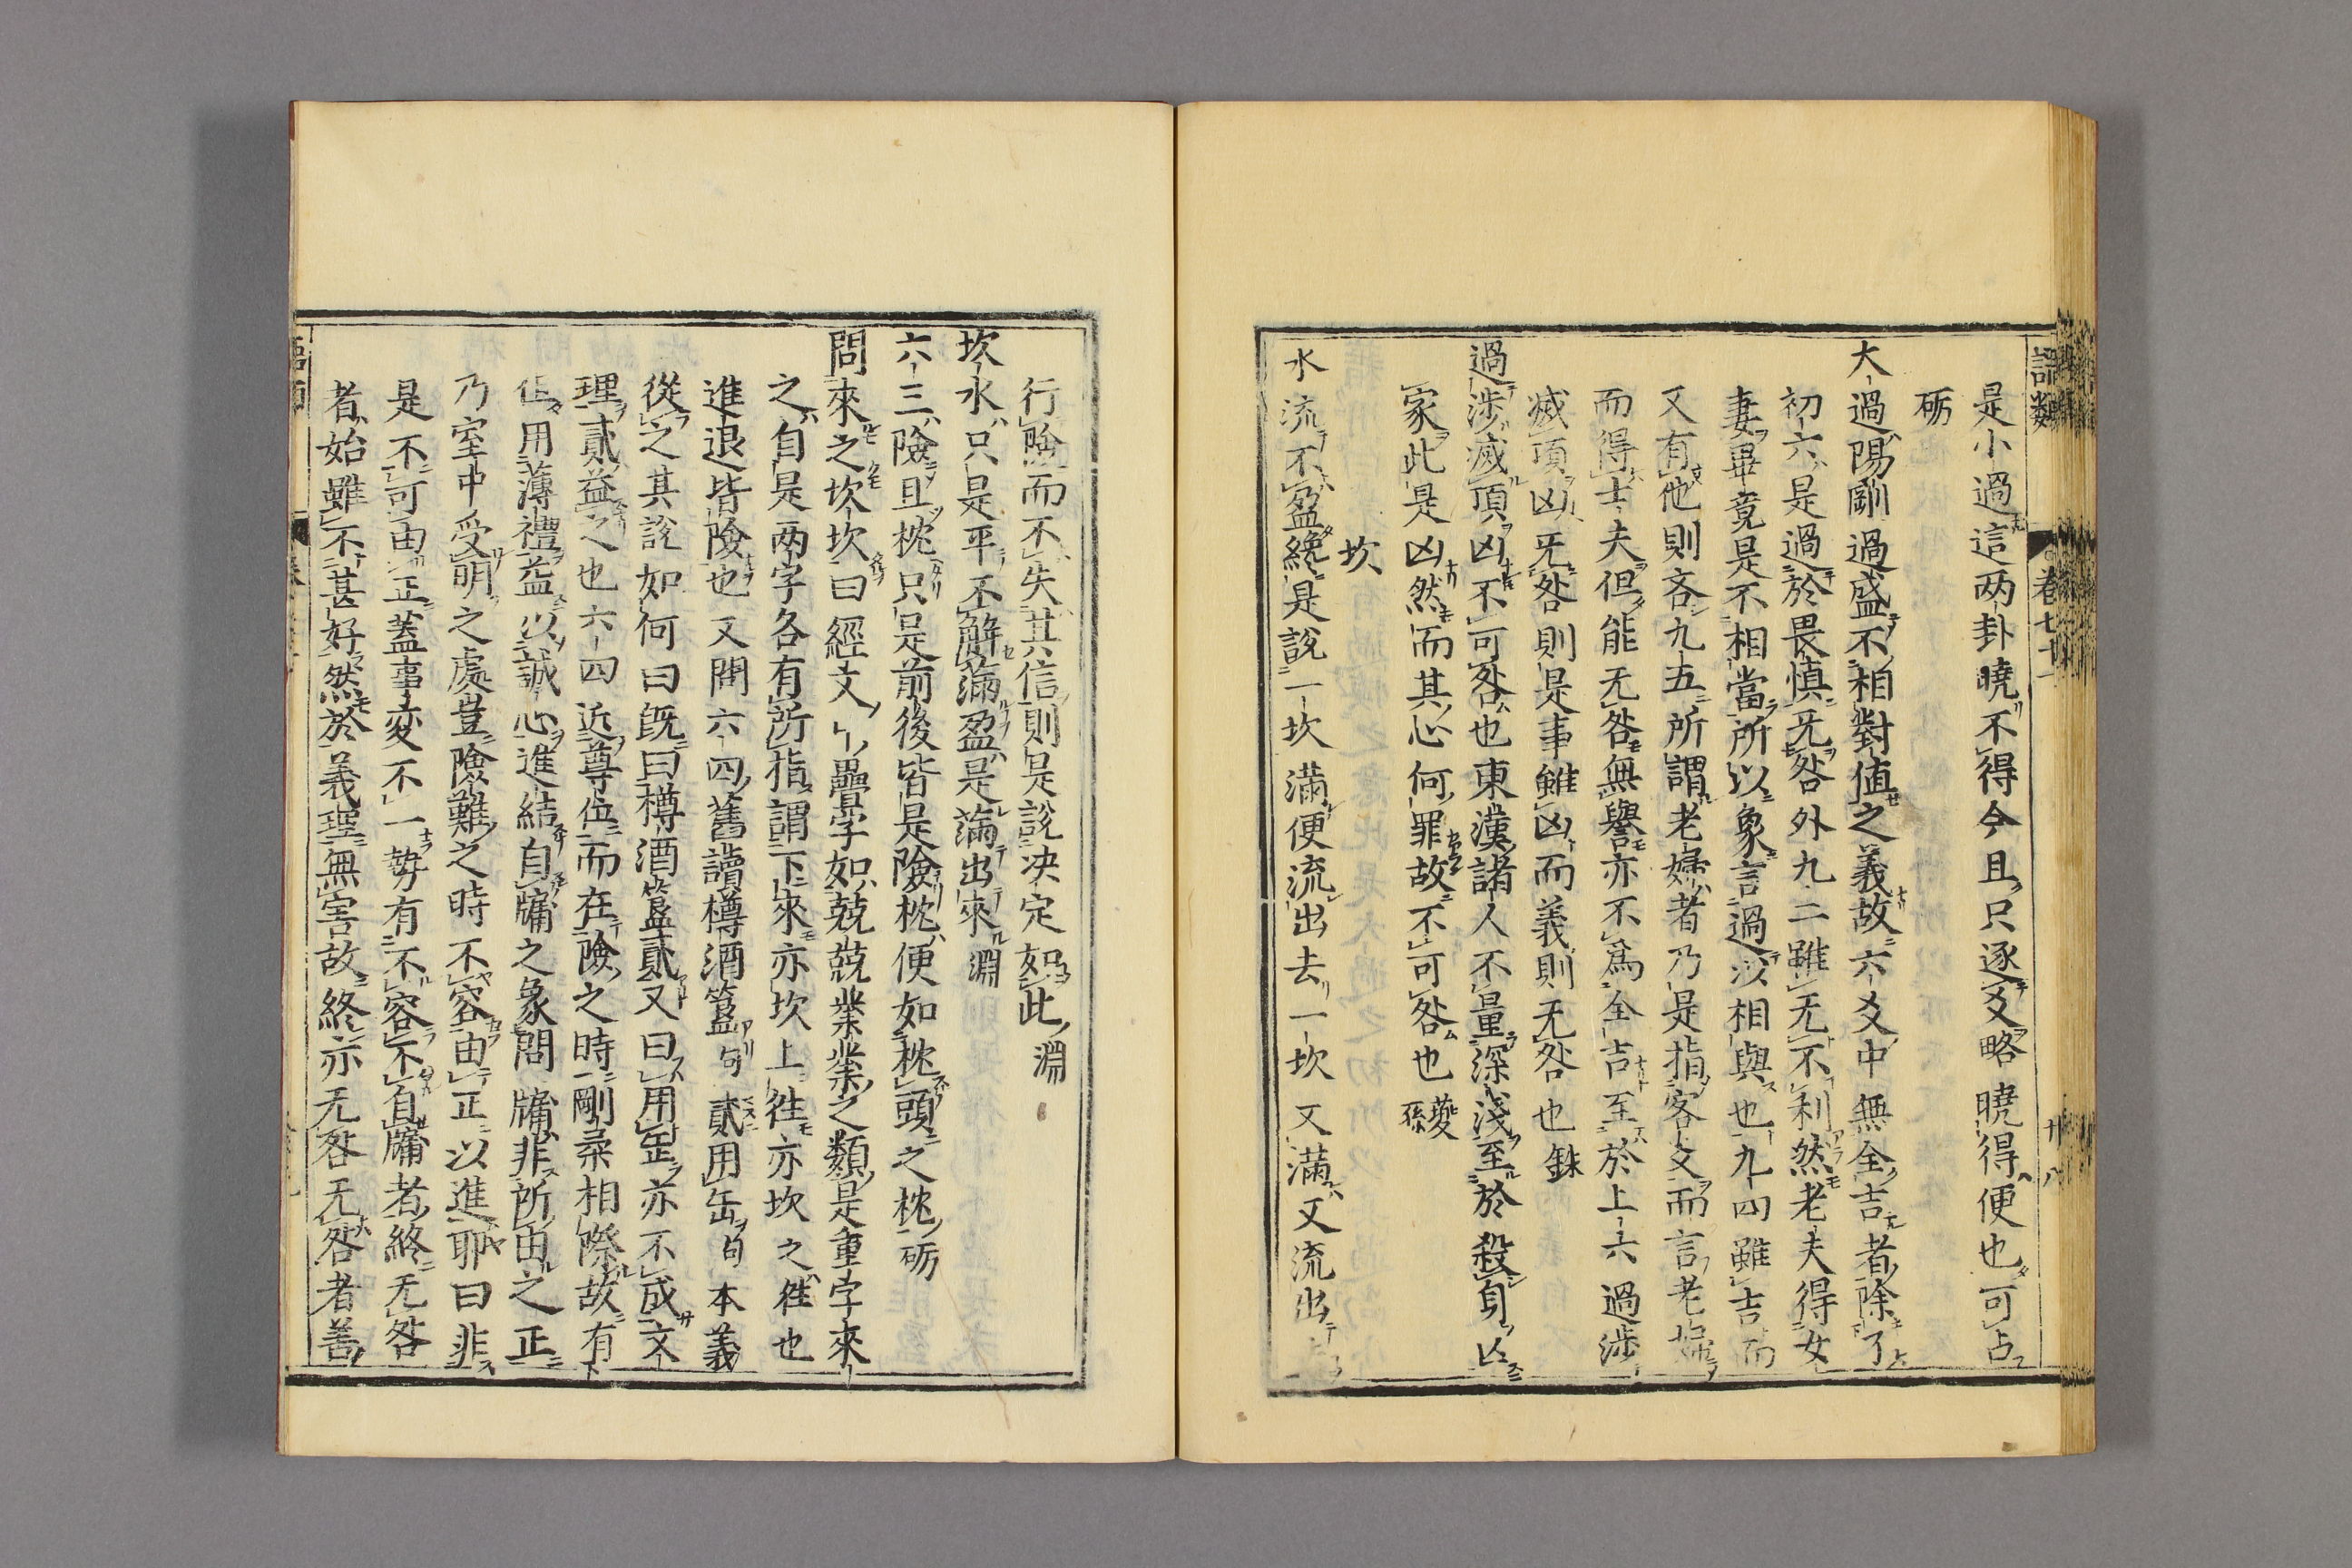 語類 卷七十一 廿八
是小過這两卦曉不得今且只逐爻略曉得便也可占
砺
大過陽剛過盛不相對值之義故六爻中無全吉者除了
初六是過於畏慎无咎外九二雖无不利然老夫得女
妻畢竟是不相當所以象言過以相與也九四雖吉而
又有他則吝九五所謂老婦者乃是指客爻而言老婦
而得士夫但能无咎無譽亦不爲全吉至於上六過涉
滅頂凶无咎則是事雖凶而義則无咎也銖
過涉滅頂凶不可咎也東漢諸人不量深淺至於殺身亡
家此是凶然而其心何罪故不可咎也夔孫
坎
水流不盈纔是說一坎滿便流出去一坎又滿又流出
行險而不失其信則是說决定如此淵
坎水只是平不解滿盈是滿出來淵
六三險且枕只是前後皆是險枕便如枕頭之枕砺
問來之坎坎曰經文中疊字如兢兢業業之類是重字來
之自是两字各有所指謂下來亦坎上徃亦坎之徃也
進退皆險也又問六四舊讀樽酒簋句貳用缶句本義
從之其說如何曰旣曰樽酒簋貳又曰用缶亦不成文
理貳益之也六四近尊位而在險之時剛柔相際故有
但用薄禮益以誠心進結自牖之象問牖非所由之正
乃室中受明之處豈險難之時不容由正以進耶曰非
是不可由正蓋事变不一勢有不容不自牖者終无咎
者始雖不甚好然於義理無害故終亦无咎无咎者善